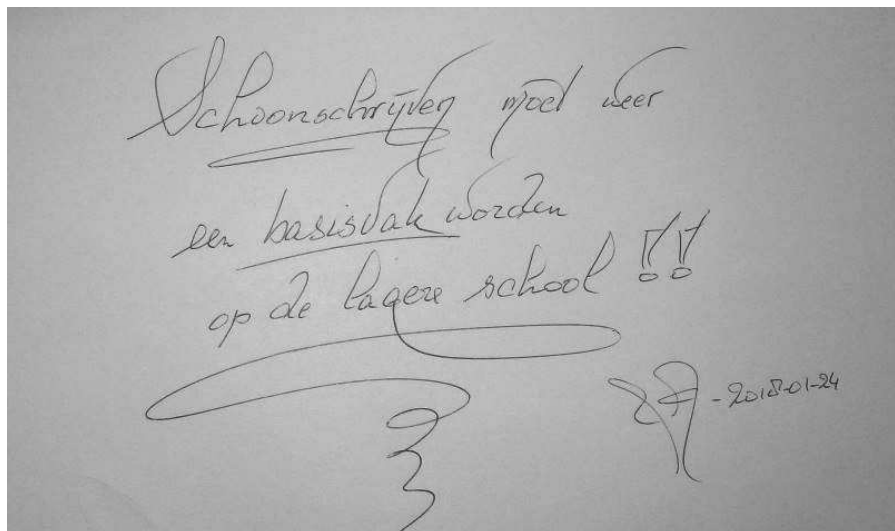 Schoonschrijven moet weer
een basisvak worden
op de lagere school !!
-2018-01-24